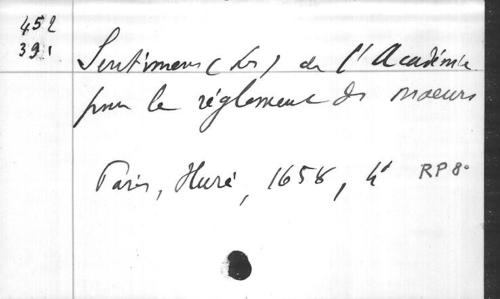 452
391
Sentimens (Les) de l'Académie
pour le réglement des moeurs
Paris, Huré, 1658, 4°
RP 8°